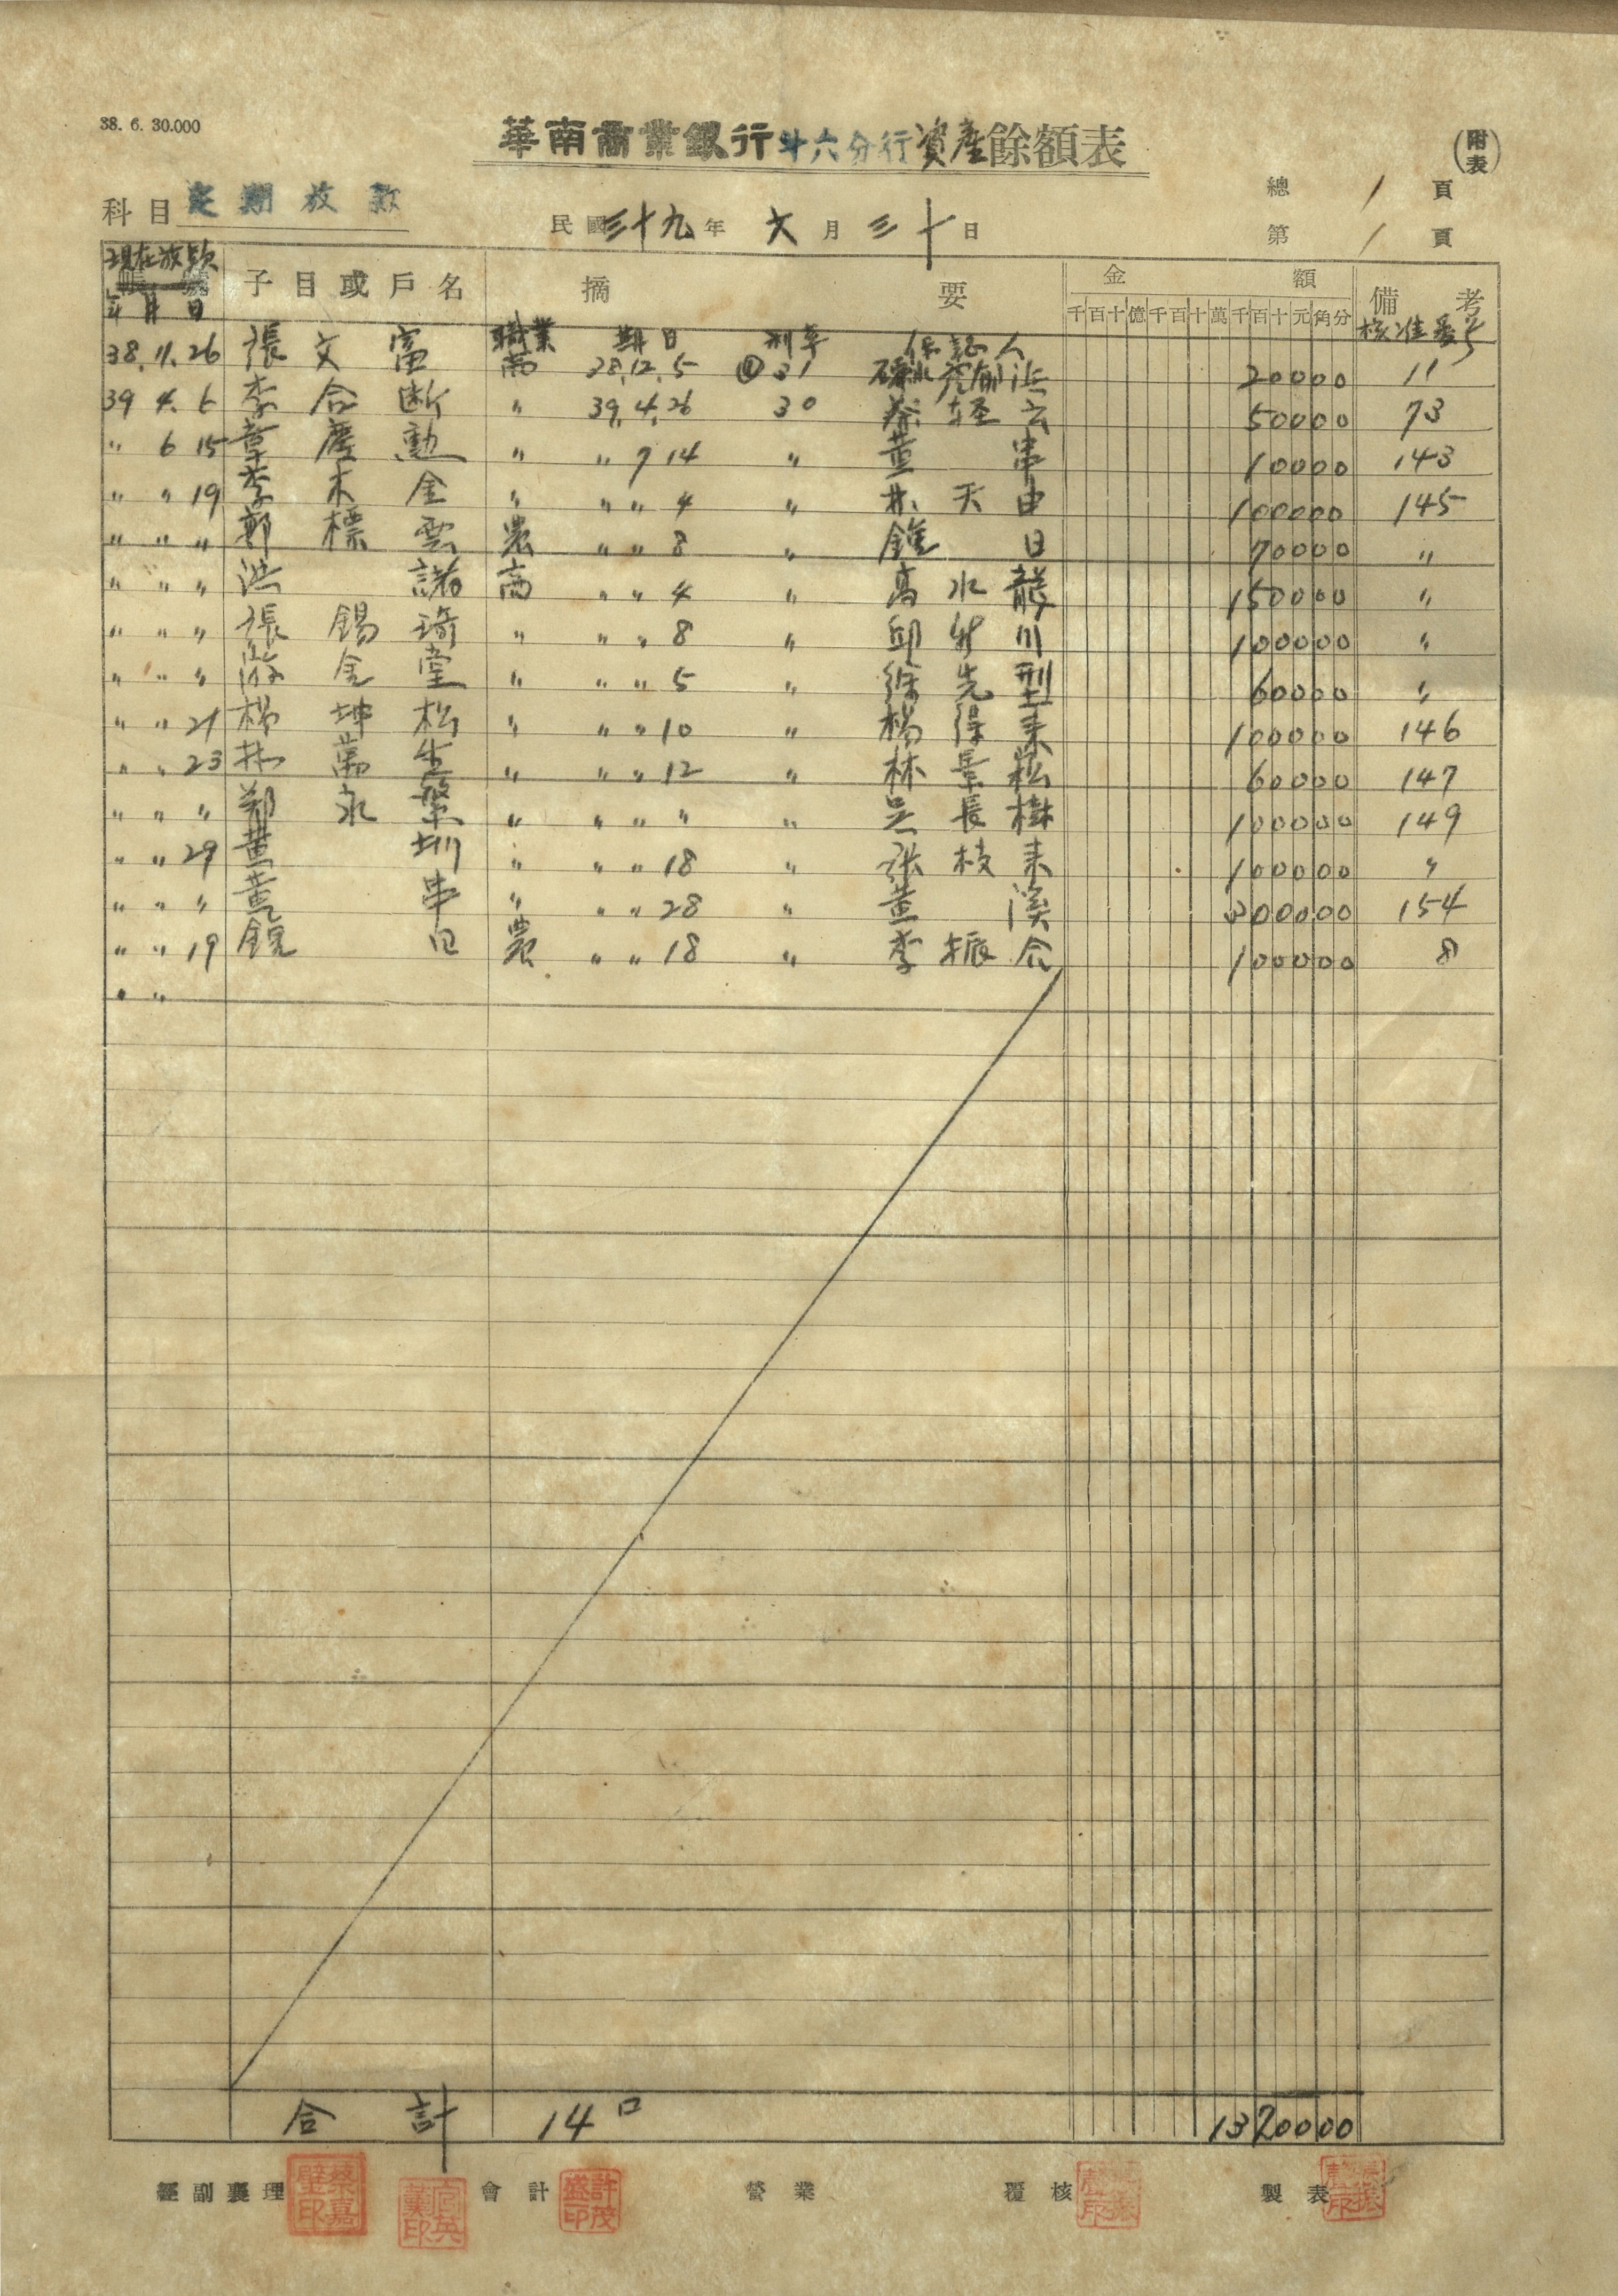 38. 6. 30.000
華南商業銀行斗六分行資產餘額表
(附表)
科目 定期放款
民國三十九年 六月三十日
總 1 頁
第 1 頁
現在放款 年月日 子目或戶名 摘要 金額 備考
千百十億千百十萬千百十元角分 核准番号
職業 期日 利率 保証人
38.11.26 張文富 商 38.12.5 31 20000 11
39 4. 6 李合断 〃 39.4.26 30 50000 73
〃 6 15 章慶勲 〃 〃 7 14 〃 董串 10000 143
〃 〃 19 李木金 〃 〃 〃 4 〃 林天由 100000 145
〃 〃 〃 郭標雲 農 〃 〃 8 〃 鐘日 70000 〃
〃 〃 〃 洪諾 商 〃 〃 4 〃 高水龍 150000 〃
〃 〃 〃 張錫琦 〃 〃 〃 8 〃 邱 川 100000 〃
〃 〃 〃 游金堂 〃 〃 〃 5 〃 徐先型 60000 〃
〃 〃 21 楊坤松 〃 〃 〃 10 〃 楊得来 100000 146
〃 〃 23 林萬生 〃 〃 〃 12 〃 林景松 60000 147
〃 〃 〃 鄭永繁 〃 〃 〃 〃 〃 吳長樹 100000 149
〃 〃 29 董圳 〃 〃 〃 18 〃 張枝来 100000 〃
〃 〃 〃 董串 〃 〃 〃 28 〃 董溪 300000 154
〃 〃 19 鐘日 農 〃 〃 18 〃 李振合 100000 8
〃 〃
合計 14口 1320000
經副襄理 會計 營業 覆核 製表
蔡嘉璧印 許茂盛印